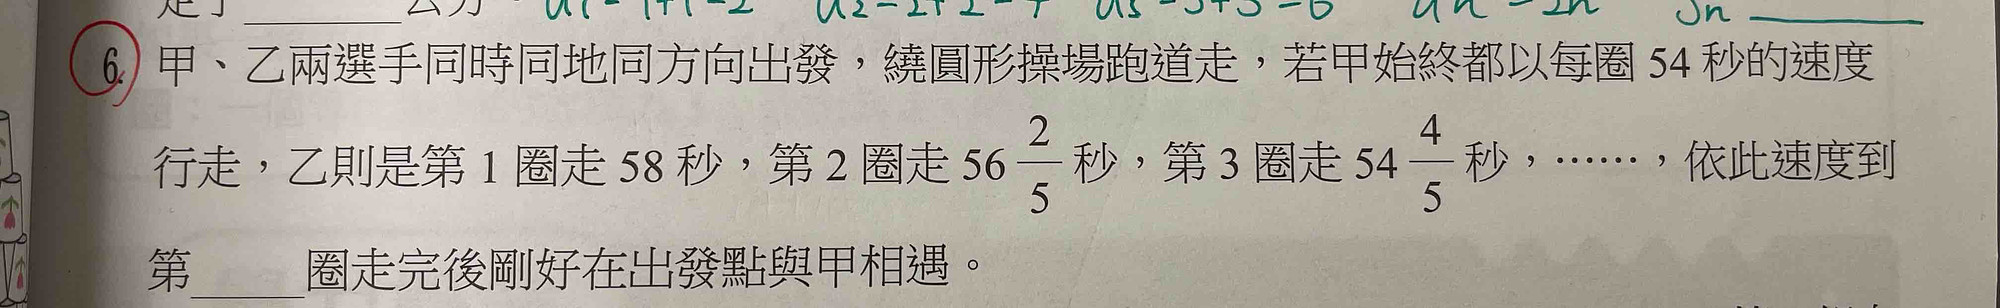 走了______公分。 a1=1+1=2 a2=2+2=4 a3=3+3=6 an=2n Sn
6. 甲、乙兩選手同時同地同方向出發,繞圓形操場跑道走,若甲始終都以每圈 54 秒的速度
行走,乙則是第 1 圈走 58 秒,第 2 圈走 56 2/5 秒,第 3 圈走 54 4/5 秒,……,依此速度到
第______圈走完後剛好在出發點與甲相遇。